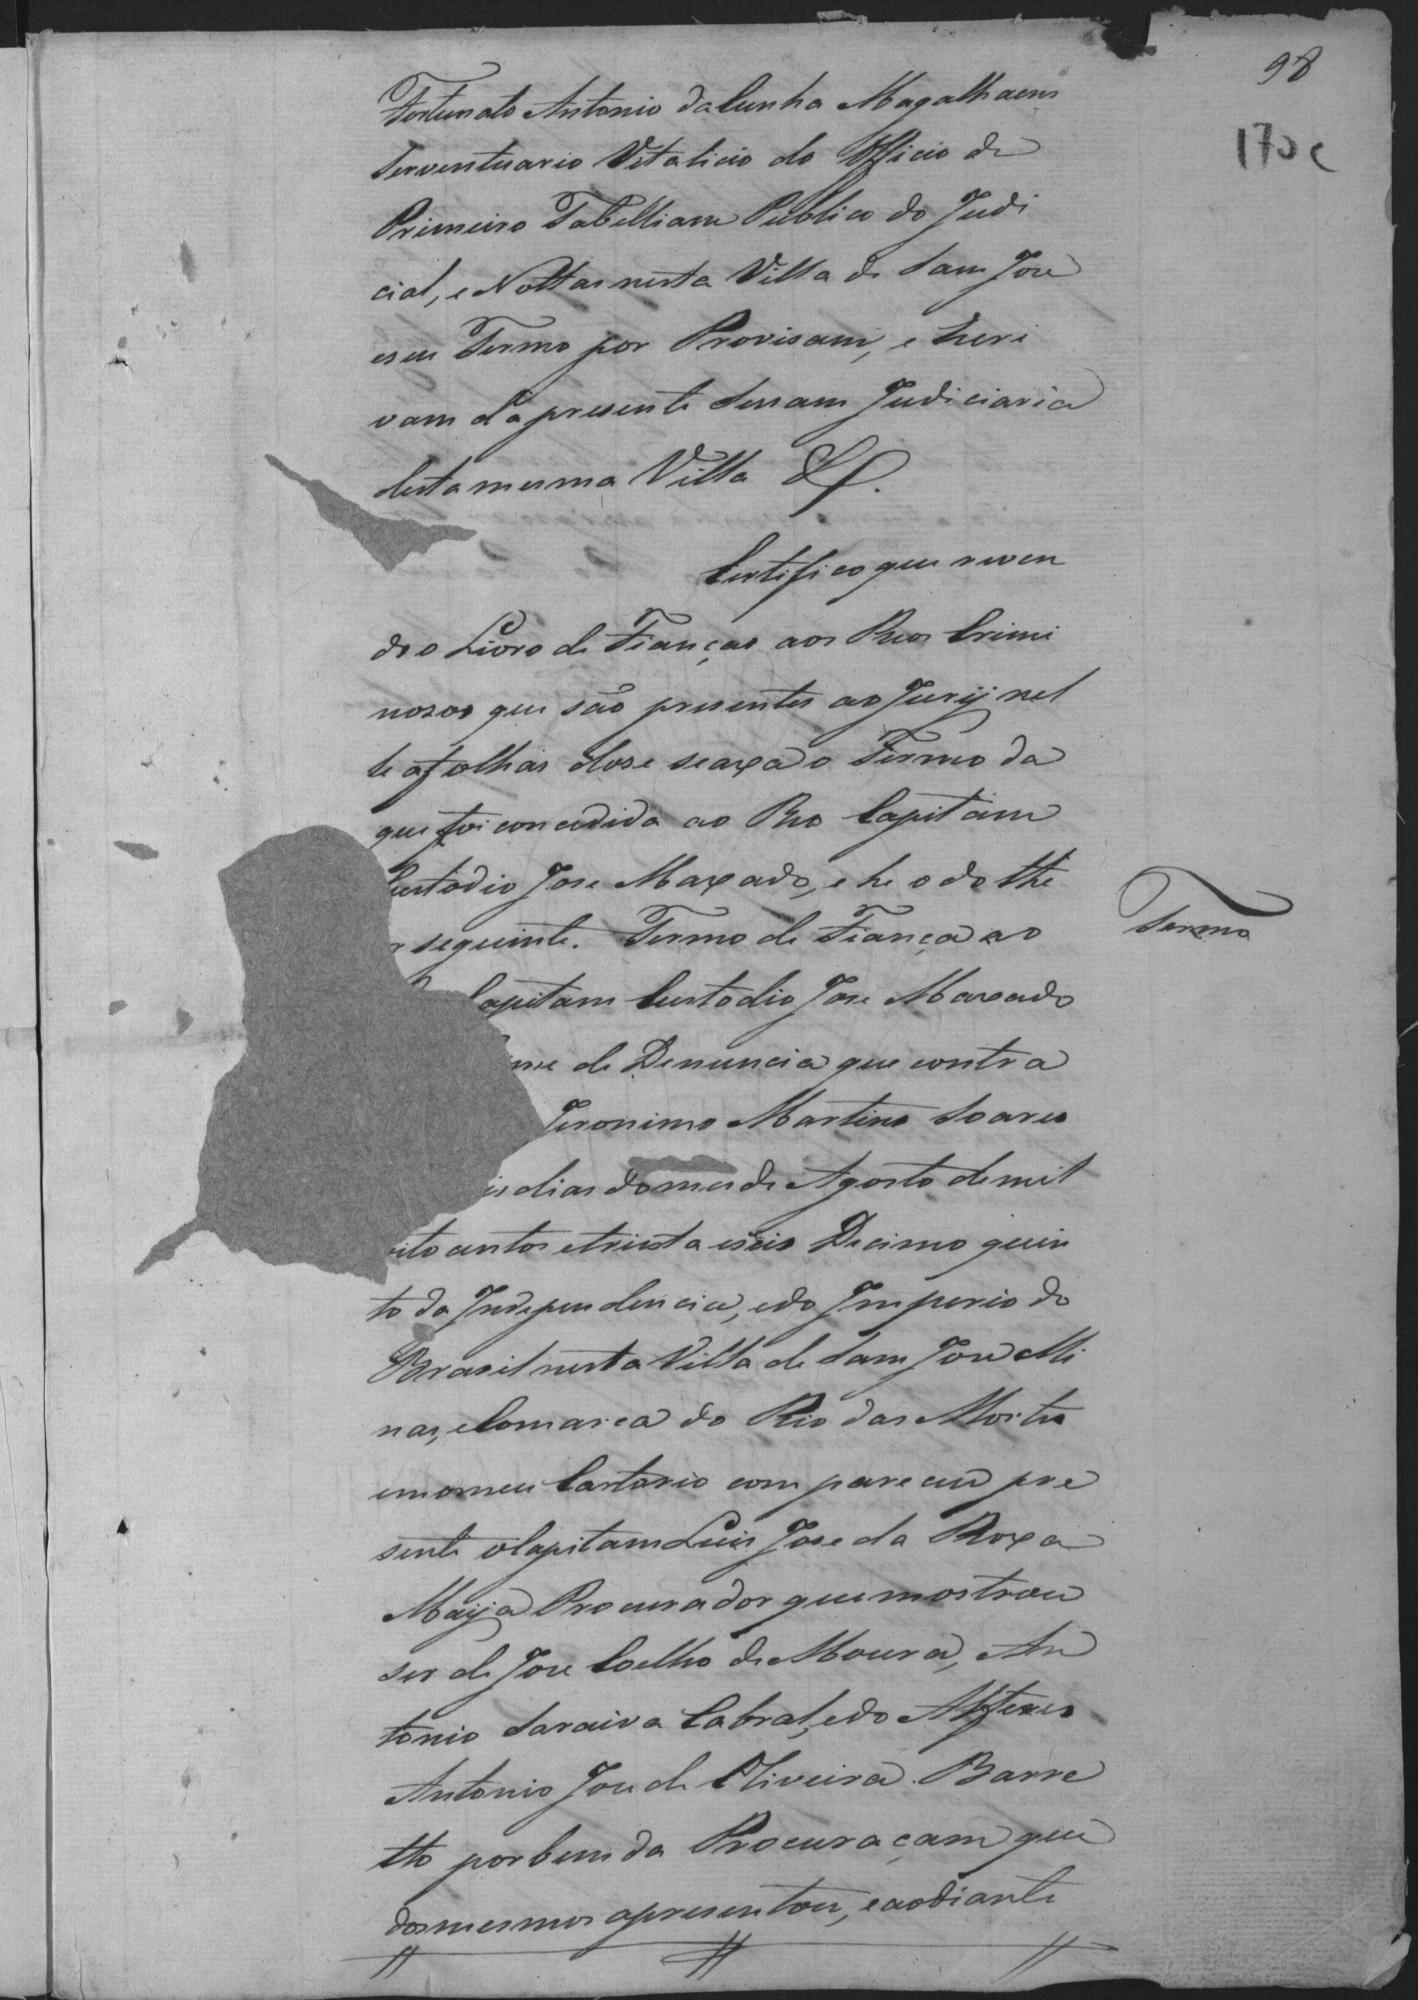 98
170c
Fortunato Antonio da Cunha Magalhaens
Serventuario Vitalicio do Officio de
Primeiro Tabelliam Publico do Judi
cial, e Nottas nesta Villa de Sam Jose
eseu Termo por Provisam, e Escri
vam da presente Sessam Judiciaria
desta mesma Villa &.
Certifico que reven
do o Livro de Fianças aos Reos Crimi
nosos que são presentes ao Jurij nel
le afolhas dose seaxa o Termo da
que foi concedida ao Reo Capitam
Custodio Jose Maxado, e he o do the
or seguinte. Termo de Fiança ao
Capitam Custodio Jose Maxado
Crime de Denuncia que contra
Jeronimo Martins Soares
dias domes de Agosto de mil
oito centos etrinta eseis Decimo quin
to da Independencia, edo Imperio do
Brasil nesta Villa de Sam Jose Mi
nas, eComarca do Rio das Mortes
emomeu Cartorio compareceu pre
sente oCapitam Luis Jose da Roxa
Maija Procurador que mostrou
ser de Jose Coelho de Moura, An
tonio Saraiva Cabral, edo Alferes
Antonio Jose de Oliveira Barre
tto porbem da Procuraçam que
dos mesmos apresentou, eaodiante
Termo